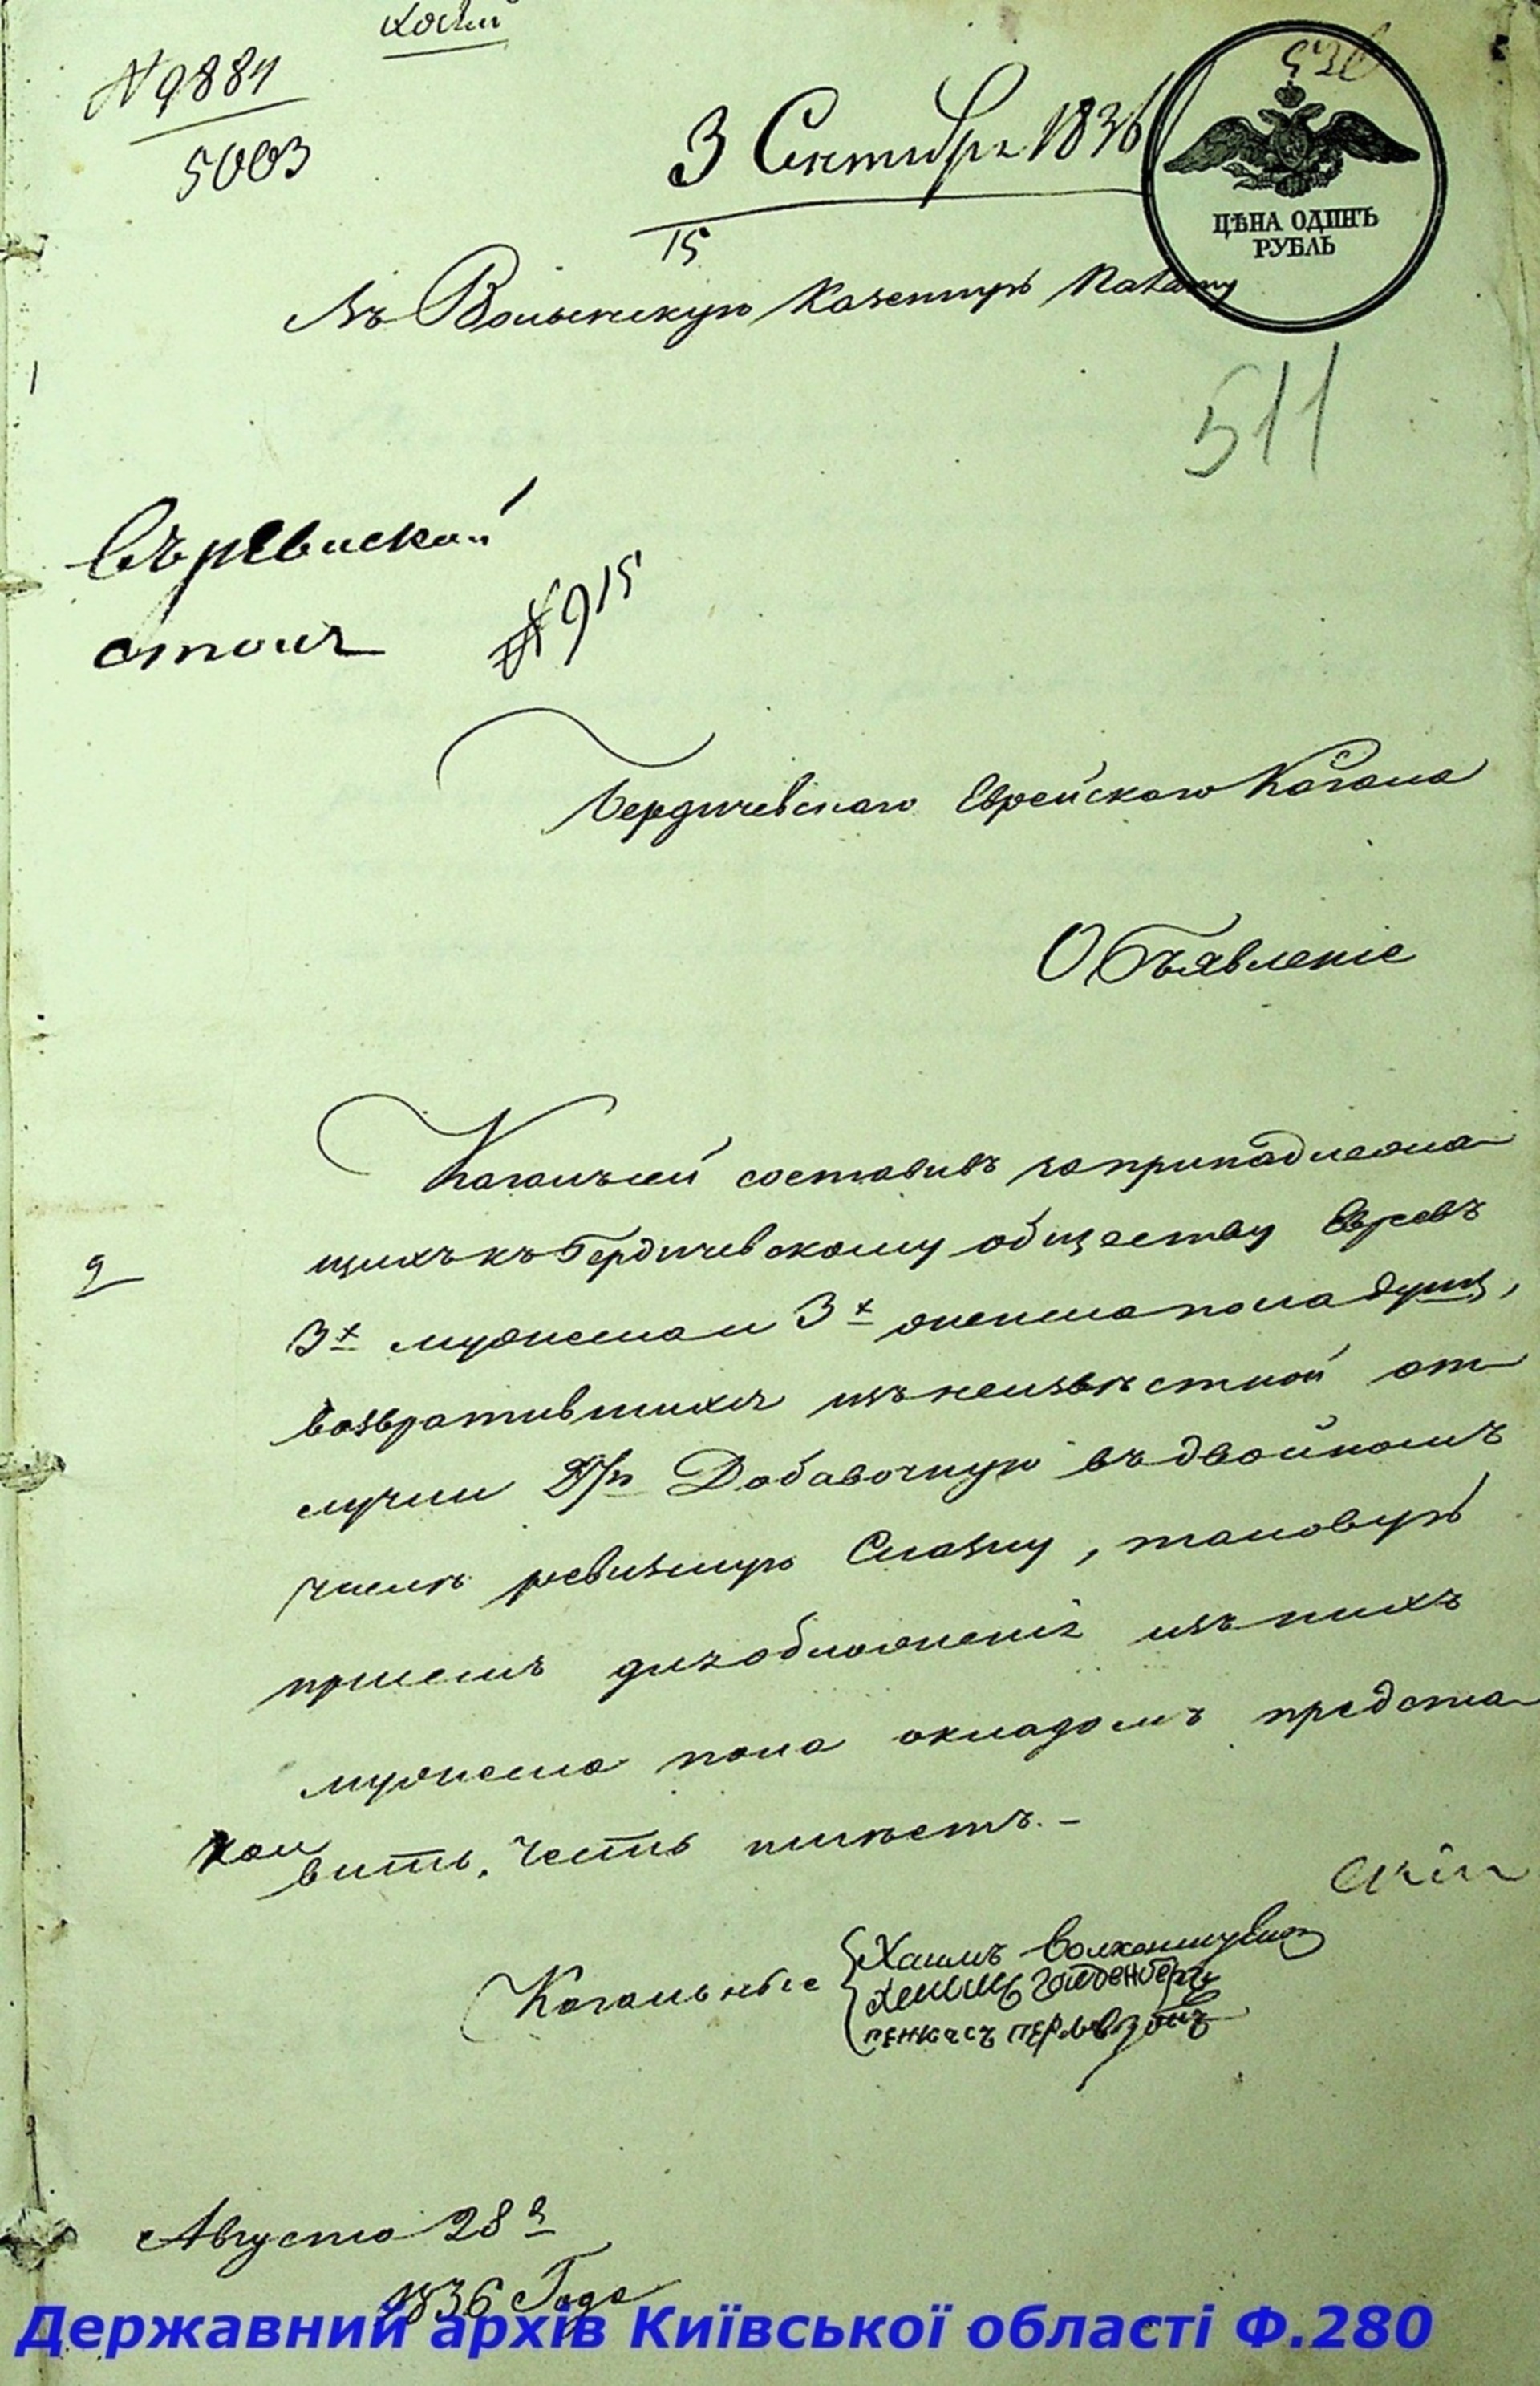 копія
№ 9884
5003
3 Сентября 1836
15
530
ЦѢНА ОДИНЪ
РУБЛЬ
Въ Волынскую Казенную Палату
511
Въ ревиской
столъ
№ 915
Бердичевскаго Еврейскаго Кагала
Объявленіе
Кагалъ сей составивъ за принадлежа
щихъ къ Бердичевскому обществу Евреевъ
3х мужеска и 3х женска пола душъ,
возвратившихся изъ неизвѣстной от
лучки Добавочную въ двойномъ
числѣ ревизкую Сказку, таковую
при семъ для обложенія изъ нихъ
мужеска пола окладомъ предста
вить, Честь имѣетъ. –
Кагальные
Хаимъ
Гольденбергъ
Пенкасъ
Августа 28 д
1836 Года
Державний архів Київської області Ф.280